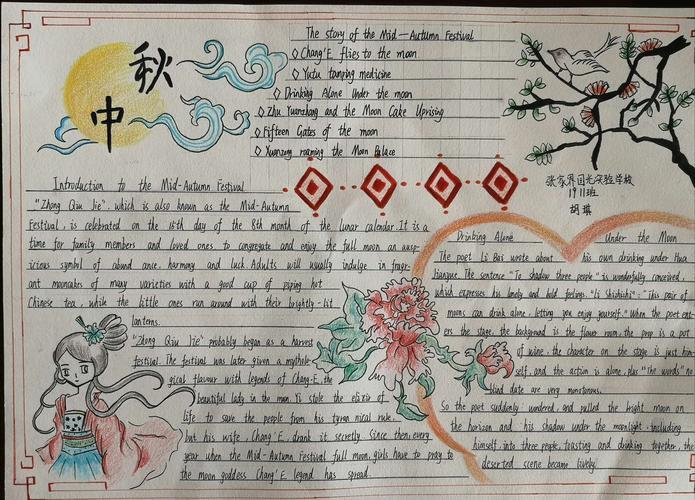 中秋
The story of the Mid—Autumn Festival
◇ Chang'E flies to the moon
◇ Yutu tamping medicine
◇ Drinking Alone Under the moon
◇ Zhu Yuanzhang and the Moon Cake Uprising
◇ Fifteen Gates of the moon
◇ Xuanzong roaming the Moon Palace
张家界国光实验学校
1911班
胡琪
Introduction to the Mid-Autumn Festival
"Zhong Qiu Jie", which is also known as the Mid-Autumn
Festival, is celebrated on the 15th day of the 8th month of the lunar calendar. It is a
time for family members and loved ones to congregate and enjoy the full moon an ausp-
icious symbol of abund ance, harmony and luck. Adults will usually indulge in fragr-
ant mooncakes of many varieties with a good cup of piping hot
Chinese tea, while the little ones run around with their brightly-lit
lanterns.
"Zhong Qiu Jie" probably began as a harvest
festival. The festival was later given a mytholo-
gical flavour with legends of Chang-E, the
beautiful lady in the moon. Yi stole the elixir of
life to save the people from his tyran nical rule,
but his wife, Chang'E, drank it secretly. Since then, every
year when the Mid-Autumn Festival full moon, girls have to pray to
the moon goddess Chang'E legend has spread.
Drinking Alone Under the Moon
The poet Li Bai wrote about his own drinking under Hua
tianyue. The sentence "To shadow three people" is wonderfully conceived,
which expresses his lonely and bold feelings. "Li Shizhishi": "This pair of
moons can drink alone, letting you enjoy yourself." When the poet ent-
ers the stage, the background is the flower room, the prop is a pot
of wine, the character on the stage is just him
self, and the action is alone, plus "The words" ne
blind date are very monotonous.
So the poet suddenly wondered, and pulled the bright moon on
the horizon and his shadow under the moonlight, including
himself, into three people, toasting and drinking together, the
deserted scene became lively.